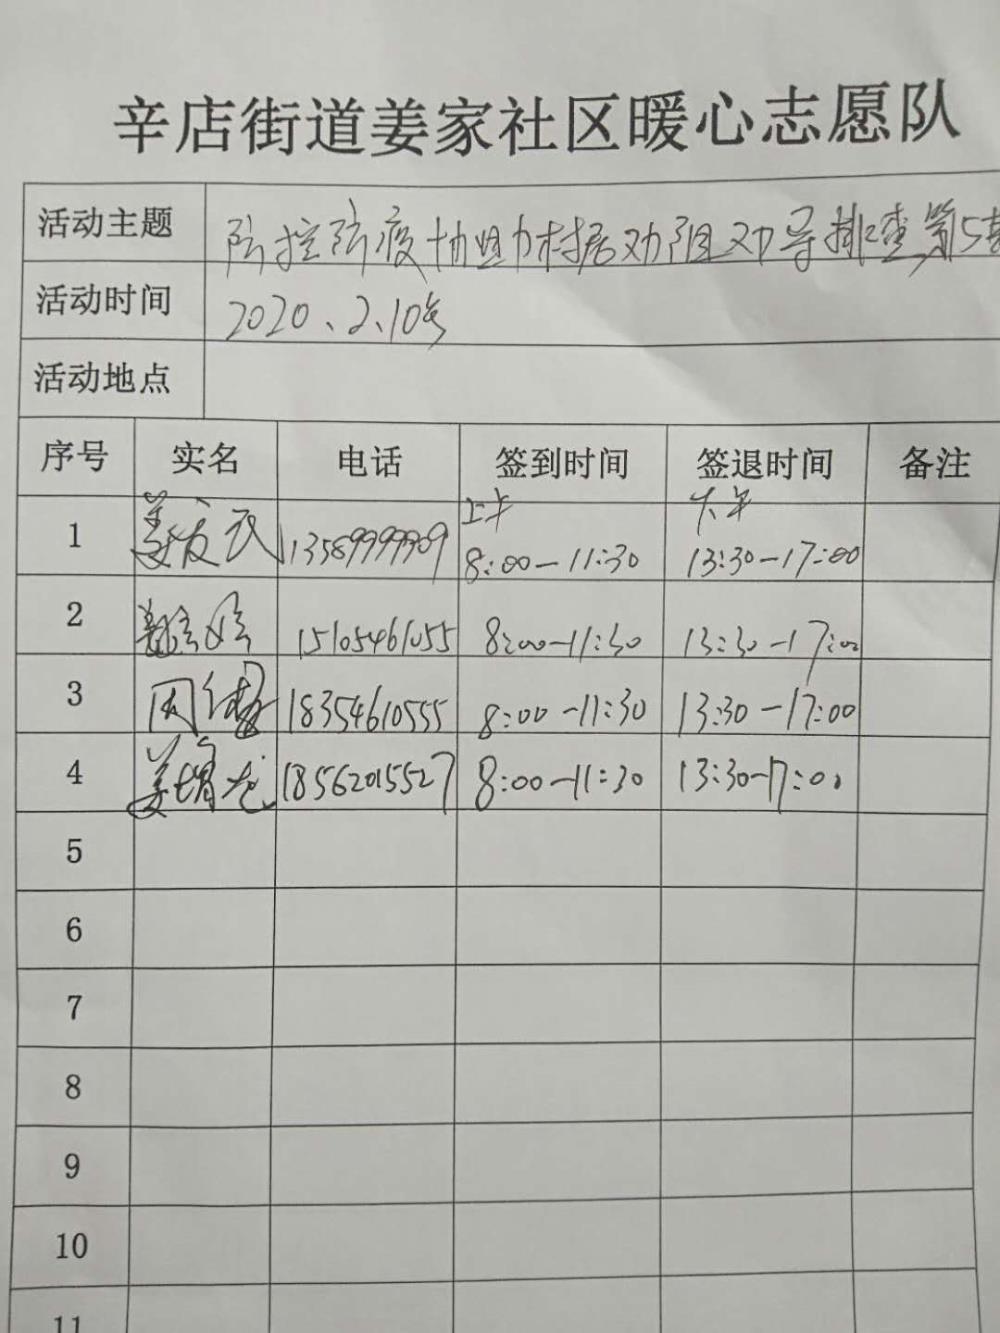 辛店街道姜家社区暖心志愿队
活动主题 防控防疫协助村居劝阻劝导排查第5
活动时间 2020、2、10号
活动地点
序号 实名 电话 签到时间 签退时间 备注
上午 下午
1 姜 民 13589999909 8:00-11:30 13:30-17:00
2 15105461055 8:00-11:30 13:30-17:00
3 周 18354610555 8:00-11:30 13:30-17:00
4 姜 龙 18562015527 8:00-11:30 13:30-17:00
5
6
7
8
9
10
11